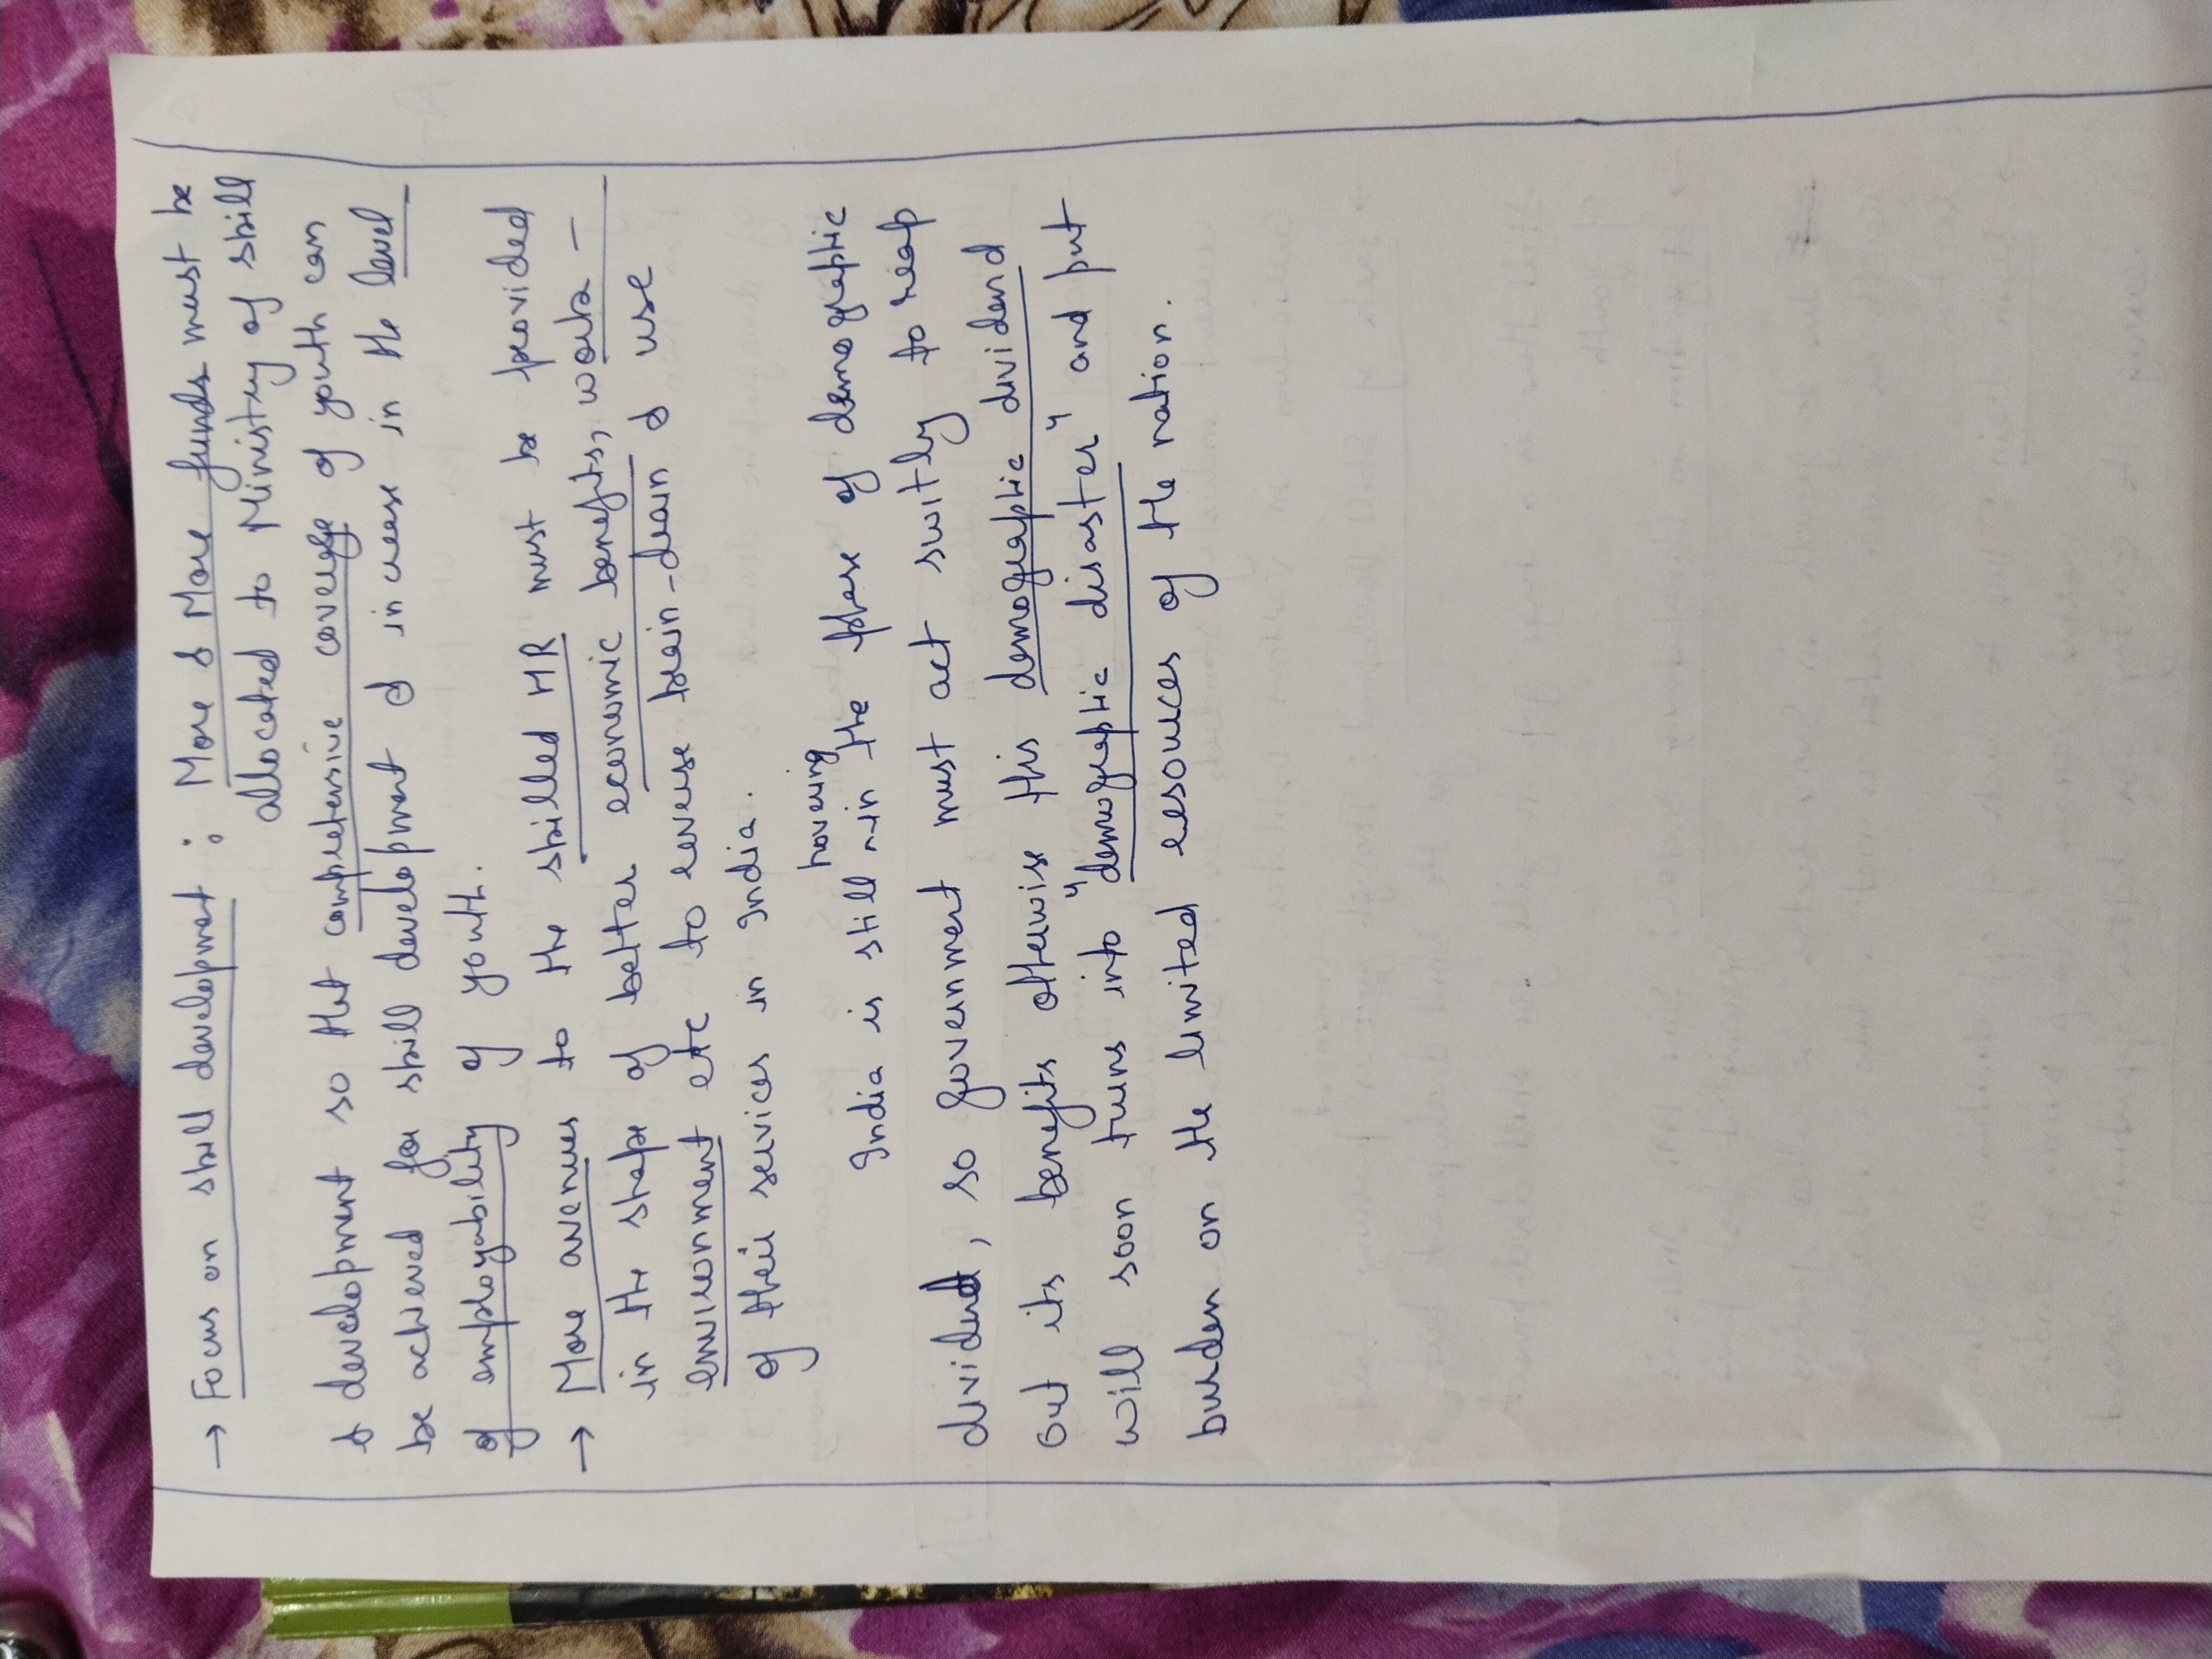 → Focus on skill development : More & More funds must be
allocated to Ministry of skill
& development so that comprehensive coverage of youth can
be achieved for skill development & increase in the level
of employability of youth.
→ More avenues to the skilled HR must be provided
in the shape of better economic benefits, work -
environment etc to reverse brain-drain & use
of their services in India.
having
India is still in the phase of demographic
dividend, so government must act switly to reap
out its benefits otherwise this demographic dividend
will soon turns into "demographic disaster" and put
burden on the limited resources of the nation.